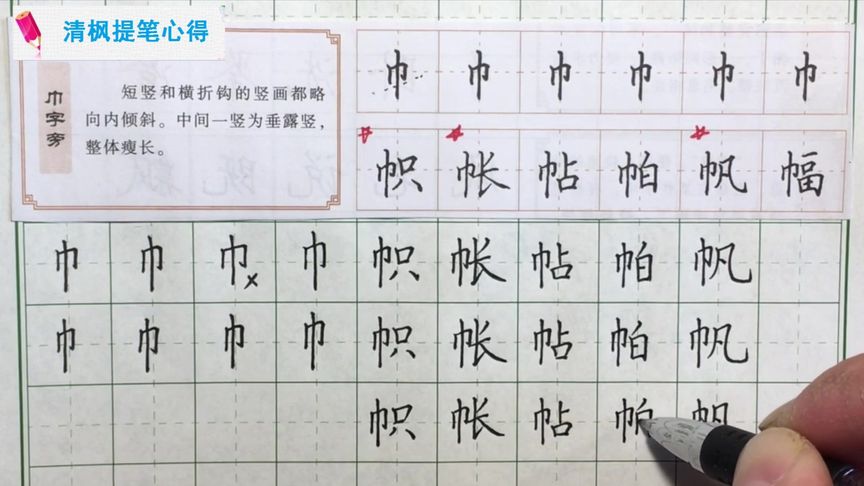 清枫提笔心得
巾字旁
短竖和横折钩的竖画都略
向内倾斜。中间一竖为垂露竖，
整体瘦长。
巾 巾 巾 巾 巾 巾
帜 帐 帖 帕 帆 幅
巾 巾 巾 巾 帜 帐 帖 帕 帆
巾 巾 巾 巾 帜 帐 帖 帕 帆
帜 帐 帖 帕 帆